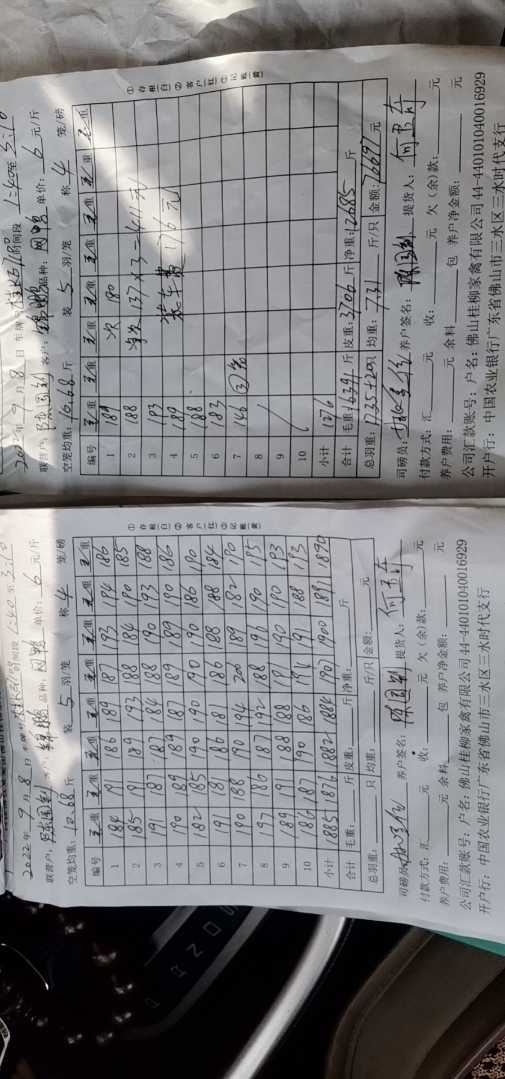 2022年9月8日
联营户：陈国钊 客户： 品种： 单价：6元/斤
空笼均重：10.68斤 装5羽/笼 称4笼/磅
编号 毛/重 毛/重 毛/重 毛/重 毛/重 毛/重 毛/重 毛/重
1 189 次 180
2 188 137×3=411元
3 193
4 189 装车费 176元
5 188
6 183
7 146
8
9
10
小计 1276
合计 毛重：16391斤 皮重：3706斤 净重：12685斤
总羽重：1735+20只 均重：7.31斤/只 金额：76697元
司磅员： 养户签名：陈国钊 提货人：
付款方式：汇 元 收： 元 欠（余）款： 元
养户费用： 元 余料 包 养户净金额： 元
公司汇款账号：户名：佛山桂柳家禽有限公司44-440101040016929
开户行：中国农业银行广东省佛山市三水区三水时代支行
①存根白②客户红③记账黄
2022年9月8日
联营户：陈国钊 品种： 单价：6元/斤
空笼均重：10.68斤 装5羽/笼 称4笼/磅
编号 毛/重 毛/重 毛/重 毛/重 毛/重 毛/重 毛/重 毛/重
1 184 191 186 189 187 193 194 186
2 185 191 189 193 188 184 190 185
3 191 187 187 184 188 190 193 188
4 190 189 189 187 189 189 190 186
5 182 185 190 190 190 186 186 190
6 191 181 186 181 186 188 188 184
7 190 188 190 194 200 189 182 190
8 197 186 187 192 188 196 190 195
9 189 191 188 188 191 190 190 193
10 186 187 190 186 194 191 188 193
小计 1885 1876 1882 1884 1901 1900 1891 1890
合计 毛重： 斤 皮重： 斤 净重： 斤
总羽重： 只 均重： 斤/只 金额： 元
司磅员： 养户签名：陈国钊 提货人：
付款方式：汇 元 收： 元 欠（余）款： 元
养户费用： 元 余料 包 养户净金额： 元
公司汇款账号：户名：佛山桂柳家禽有限公司44-440101040016929
开户行：中国农业银行广东省佛山市三水区三水时代支行
①存根白②客户红③记账黄